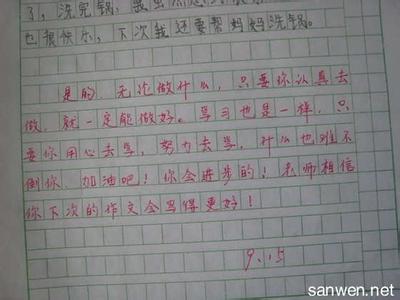 了，洗完锅，虽虫然
也很快乐，下次我还要帮妈妈洗锅。
是的，无论做什么，只要你认真去
做，就一定能做好。学习也是一样，只
要你用心去学，努力去学，什么也难不
倒你，加油吧！你会进步的！老师相信
你下次的作文会写得更好！
9.15
sanwen.net